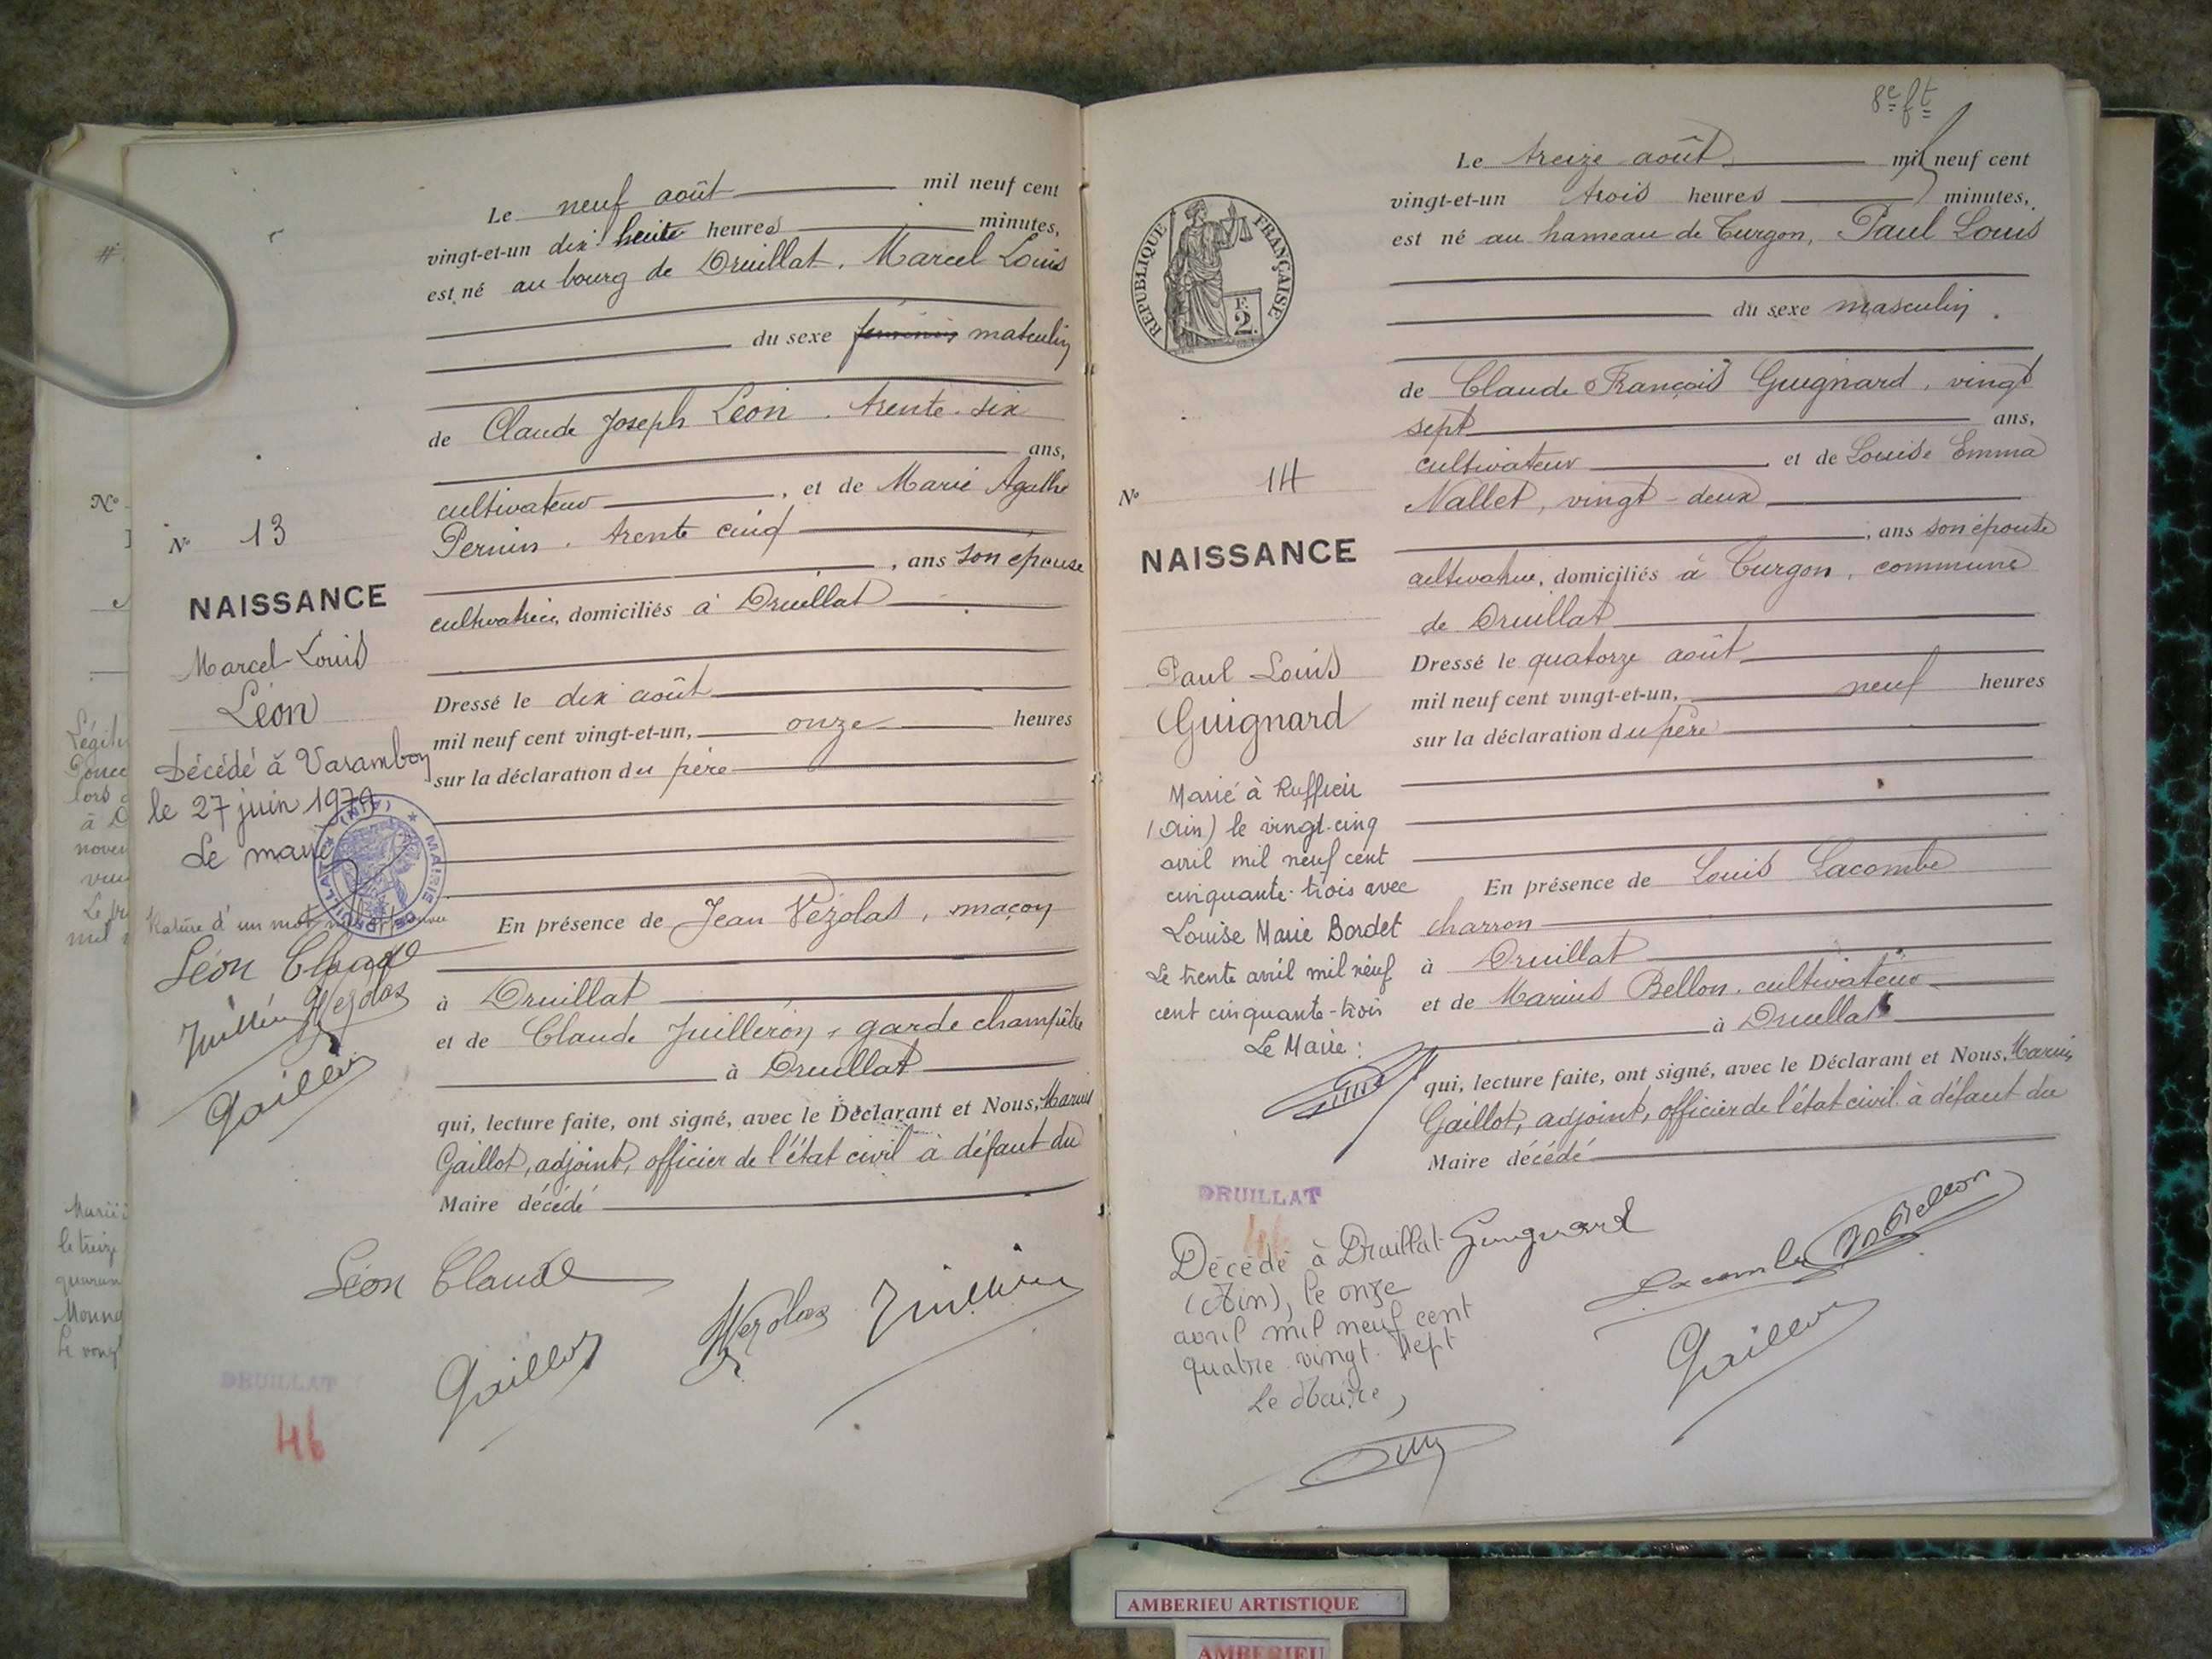 Le neuf août mil neuf cent
vingt-et-un dix huit heures minutes,
est né au bourg de Druillat, Marcel Louis
du sexe féminin masculin
de Claude Joseph Léon, trente-six
ans,
cultivateur, et de Marie Agathe
trente cinq
, ans son épouse
cultivatrice, domiciliés à Druillat
Dressé le dix août
mil neuf cent vingt-et-un, onze heures
sur la déclaration du père
En présence de Jean Vézolas, maçon
à Druillat
et de Claude Juilléron, garde champêtre
à Druillat
qui, lecture faite, ont signé, avec le Déclarant et Nous, Marius
Gaillot, adjoint, officier de l'état civil à défaut du
Maire décédé
Léon Claude
Gaillot
Vezolas
N° 13
NAISSANCE
Marcel-Louis
Léon
Décédé à Varambon
le 27 juin
Le maire
MAIRIE DE DRUILLAT (AIN)
Rature d'un mot
Léon Claude
Vezolas
Gaillot
DRUILLAT
46
8e ft
Le treize août mil neuf cent
vingt-et-un trois heures minutes,
est né au hameau de Turgon, Paul Louis
du sexe masculin.
de Claude François Guignard, vingt
sept ans,
cultivateur, et de Louise Emma
Nallet, vingt-deux
, ans son épouse
cultivatrice, domiciliés à Turgon, commune
de Druillat
Dressé le quatorze août
mil neuf cent vingt-et-un, neuf heures
sur la déclaration du père
En présence de Louis Lacombe
charron
à Druillat
et de Marius Bellon, cultivateur
à Druillat
qui, lecture faite, ont signé, avec le Déclarant et Nous, Marius
Gaillot, adjoint, officier de l'état civil à défaut du
Maire décédé
Guignard
Lacombe
Bellon
Gaillot
REPUBLIQUE FRANÇAISE
F.
2.
N° 14
NAISSANCE
Paul Louis
Guignard
Marié à Ruffieu
(Ain) le vingt-cinq
avril mil neuf cent
cinquante-trois avec
Louise Marie Bordet
Le trente avril mil neuf
cent cinquante-trois
Le Maire :
DRUILLAT
46
Décédé à Druillat
(Ain), le onze
avril mil neuf cent
quatre-vingt-sept
Le Maire,
AMBERIEU ARTISTIQUE
AMBERIEU